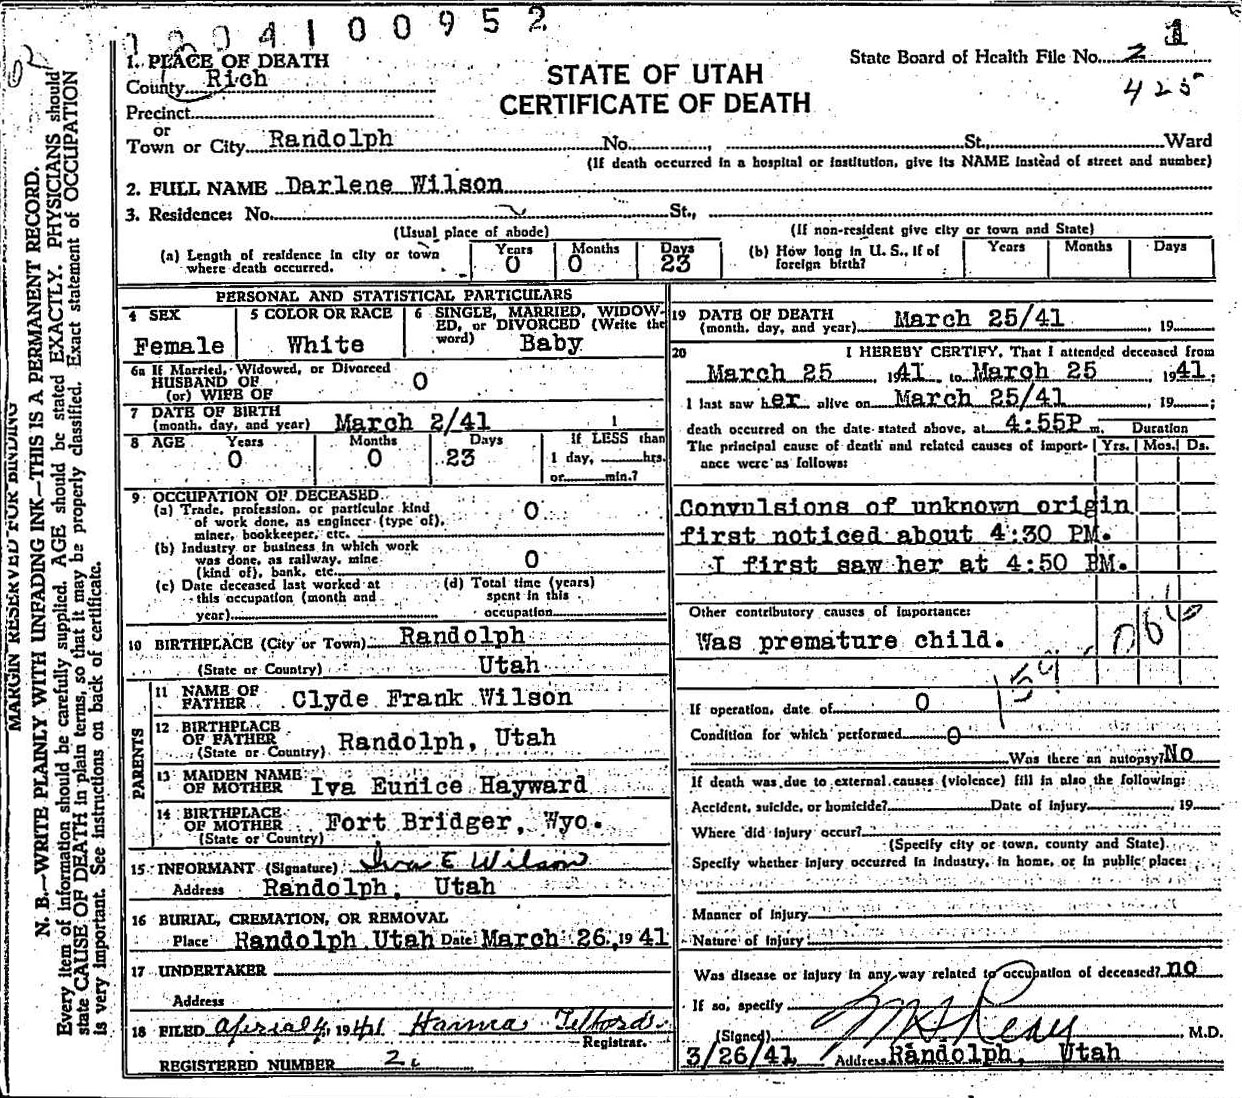 0 0 9 5 2
1
State Board of Health File No. 2
425
STATE OF UTAH
CERTIFICATE OF DEATH
1. PLACE OF DEATH
County Rich
Precinct
or
Town or City Randolph No. , St., Ward
(If death occurred in a hospital or institution, give its NAME instead of street and number)
2. FULL NAME Darlene Wilson
3. Residence: No. St.,
(Usual place of abode) (If non-resident give city or town and State)
(a) Length of residence in city or town where death occurred. Years 0 Months 0 Days 23
(b) How long in U. S., if of foreign birth? Years Months Days
PERSONAL AND STATISTICAL PARTICULARS
4 SEX Female
5 COLOR OR RACE White
6 SINGLE, MARRIED, WIDOWED, or DIVORCED (Write the word) Baby
6a If Married, Widowed, or Divorced
HUSBAND OF
(or) WIFE OF 0
7 DATE OF BIRTH
(month, day, and year) March 2/41
8 AGE Years 0 Months 0 Days 23 If LESS than 1 day, hrs. or min.?
9 OCCUPATION OF DECEASED
(a) Trade, profession, or particular kind of work done, as engineer (type of), miner, bookkeeper, etc. 0
(b) Industry or business in which work was done, as railway, mine (kind of), bank, etc. 0
(c) Date deceased last worked at this occupation (month and year)
(d) Total time (years) spent in this occupation
10 BIRTHPLACE (City or Town) Randolph
(State or Country) Utah
PARENTS
11 NAME OF FATHER Clyde Frank Wilson
12 BIRTHPLACE OF FATHER
(State or Country) Randolph, Utah
13 MAIDEN NAME OF MOTHER Iva Eunice Hayward
14 BIRTHPLACE OF MOTHER
(State or Country) Fort Bridger, Wyo.
15 INFORMANT (Signature) Iva E Wilson
Address Randolph, Utah
16 BURIAL, CREMATION, OR REMOVAL
Place Randolph Utah Date March 26, 1941
17 UNDERTAKER
Address
18 FILED 1941 Telford
Registrar.
REGISTERED NUMBER 2
19 DATE OF DEATH
(month, day, and year) March 25/41 , 19
20 I HEREBY CERTIFY, That I attended deceased from
March 25 1941, to March 25 1941;
I last saw her alive on March 25/41 , 19 ;
death occurred on the date stated above, at 4:55P m. Duration
The principal cause of death and related causes of importance were as follows: Yrs. Mos. Ds.
Convulsions of unknown origin
first noticed about 4:30 PM.
I first saw her at 4:50 PM.
Other contributory causes of importance:
Was premature child.
159
If operation, date of 0
Condition for which performed 0
Was there an autopsy? No
If death was due to external causes (violence) fill in also the following:
Accident, suicide, or homicide? Date of Injury , 19
Where did injury occur?
(Specify city or town, county and State)
Specify whether injury occurred in industry, in home, or in public place:
Manner of Injury
Nature of Injury
Was disease or injury in any way related to occupation of deceased? no
If so, specify
(Signed) M.D.
3/26/41 Address Randolph, Utah
MARGIN RESERVED FOR BINDING
N. B.—WRITE PLAINLY WITH UNFADING INK—THIS IS A PERMANENT RECORD.
Every item of information should be carefully supplied. AGE should be stated EXACTLY. PHYSICIANS should
state CAUSE OF DEATH in plain terms, so that it may be properly classified. Exact statement of OCCUPATION
is very important. See instructions on back of certificate.